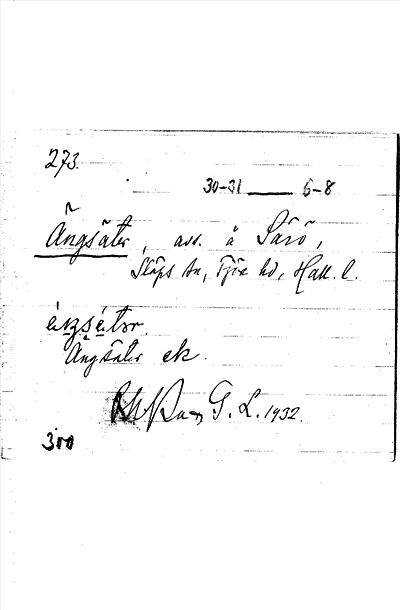 273.
30-31 — 5-8
Ängsäter, avs. å Särö,
Släps sn, Fjäre hd, Hall. l.
Ängsäter ek.
G. L. 1932.
300